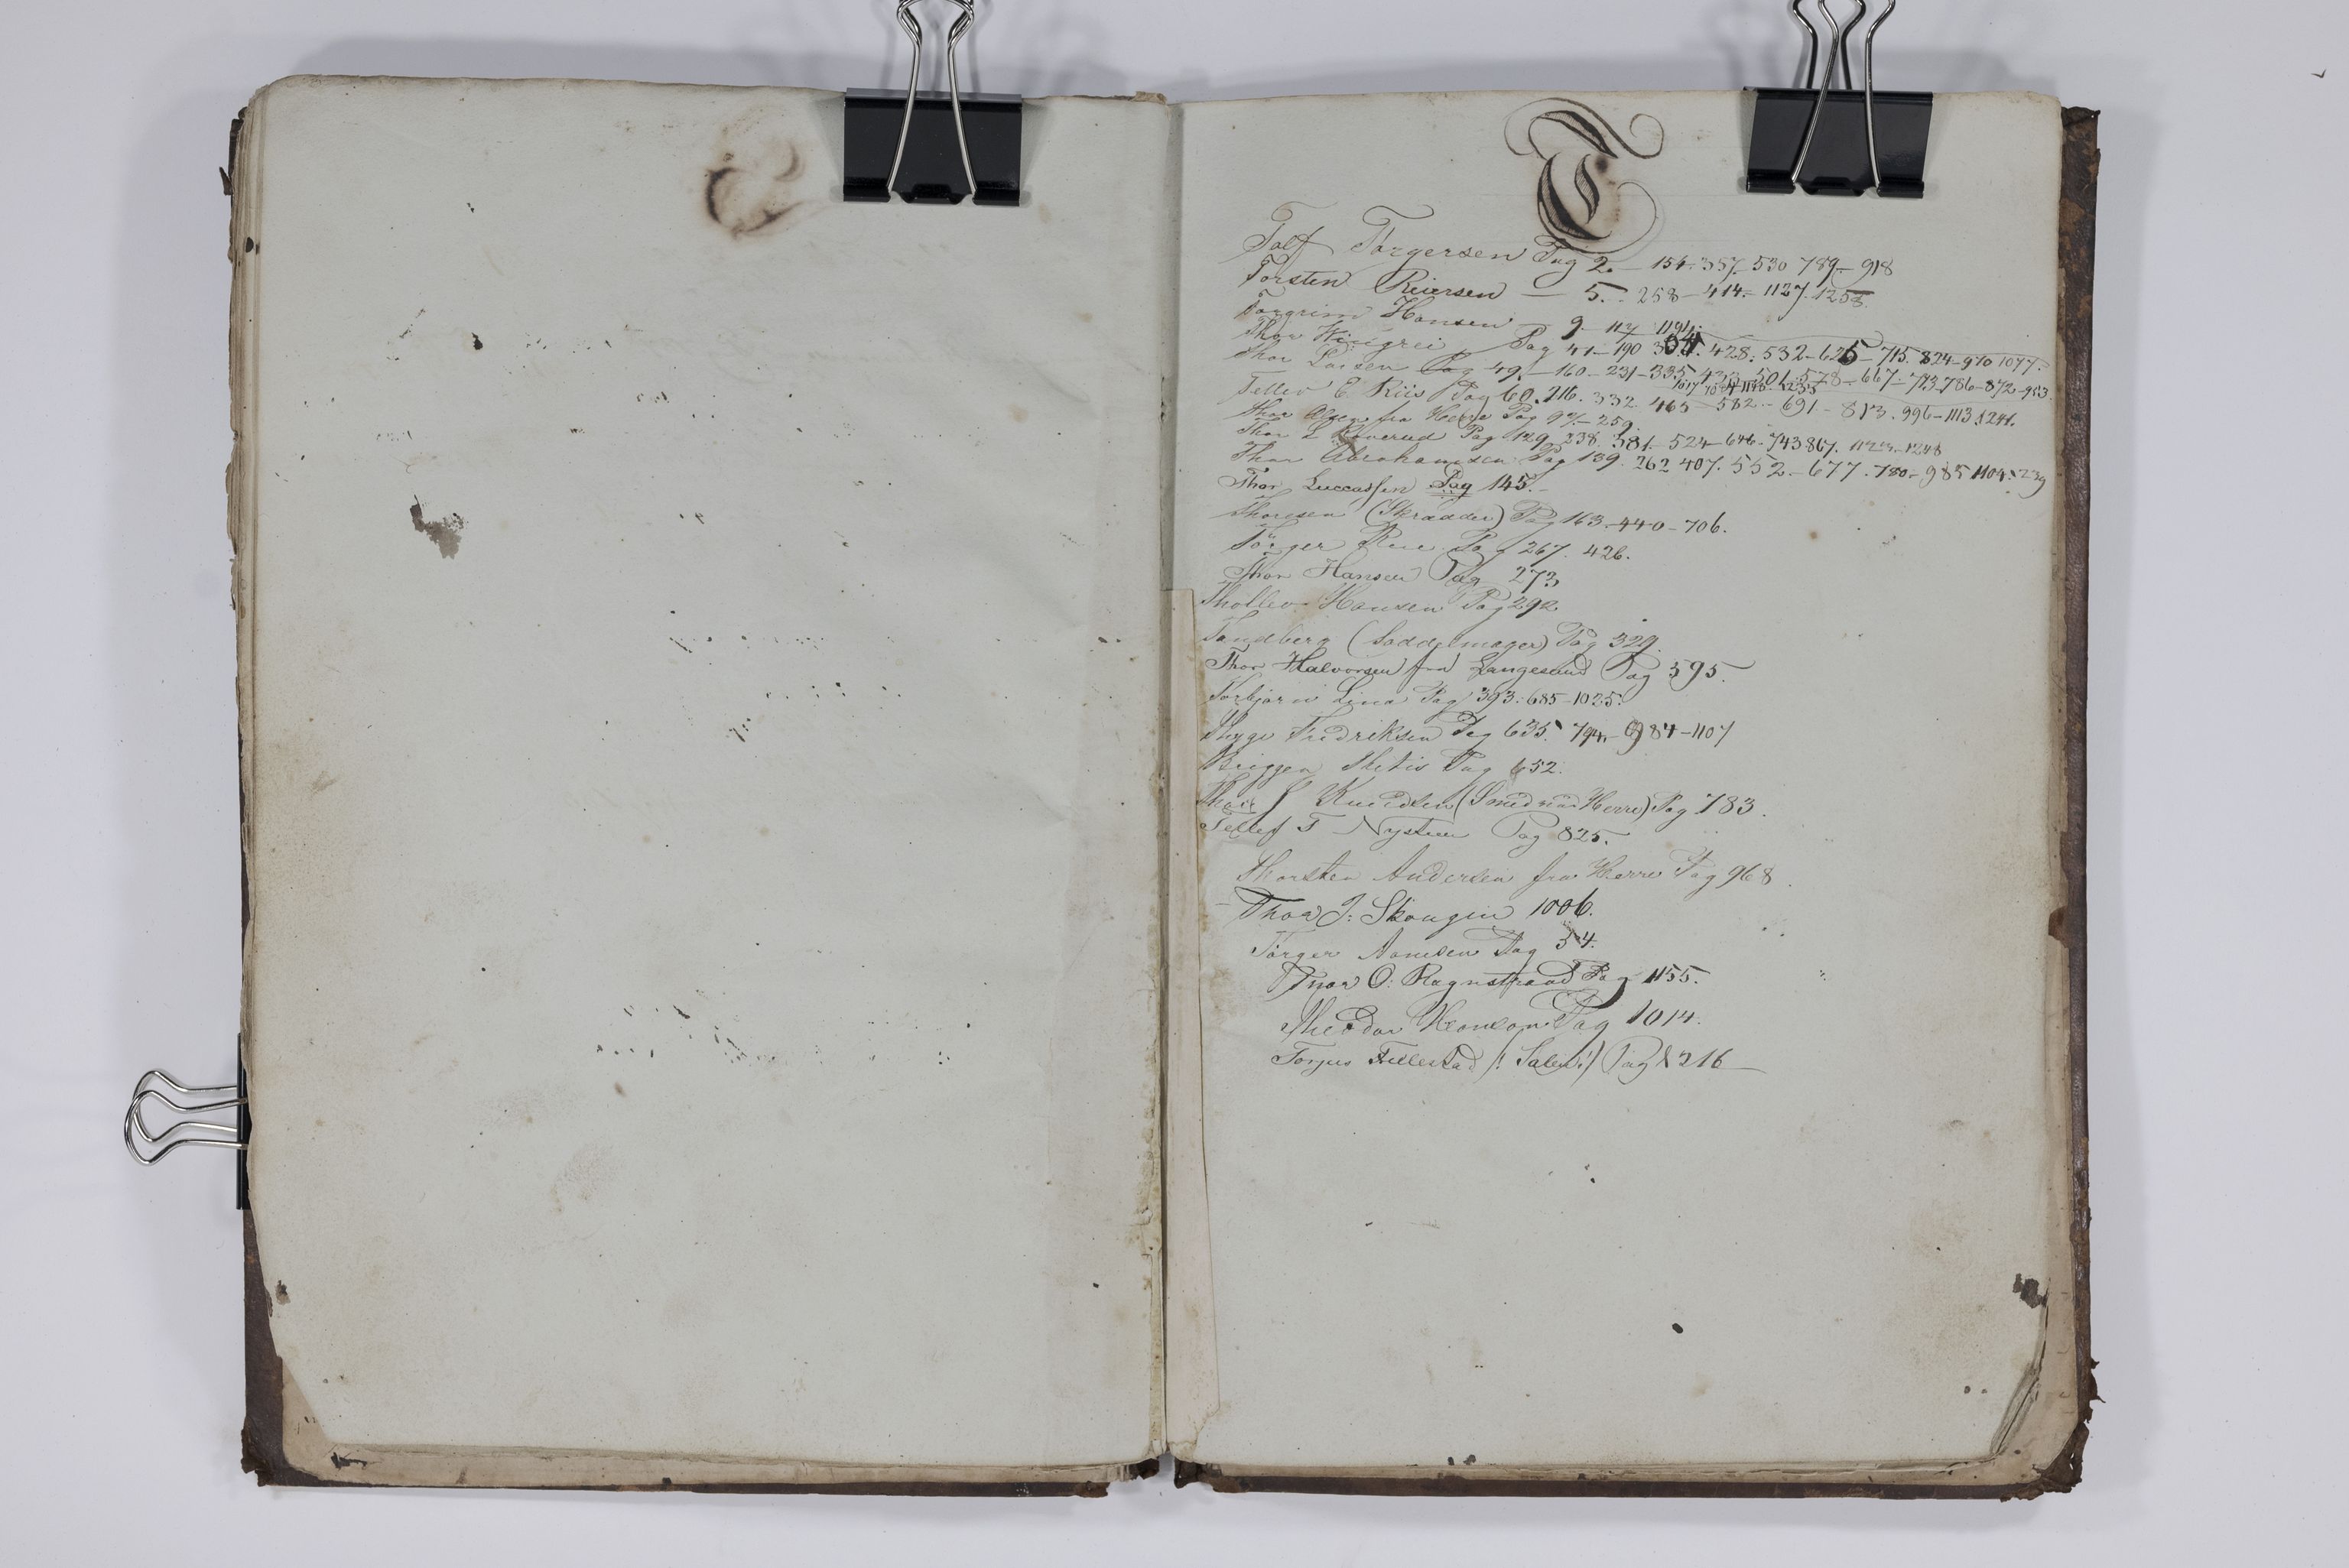 T
Tolf Torgersen Pag 2. - 154. 357. 530 789. - 918
Torsten Reiersen - 5. - 258 - 414. - 1127. 1258.
Torgrim Hansen 9 - 117 1194
Thor Pag 41 - 190 428. 532 - 625 - 715. 824 - 970 1077.
Thor Larsen Pag 49. - 160 - 231 - 335 433 - 501. 578 - 667. - 713 786 - 872 - 953.
Tellev E. Riis Pag 60. 216. 332. 465 - 582 - 691 - 813. 996 - 1113 1241.
Thor Olsen fra Herre Pag 97. - 259.
Thor L Pag 129. 238. 381. - 524 - 646 - 743 867. 1123. - 1248
Thor Abrahamsen Pag 139. 262 407. 552. - 677. 780 - 985 1104.
Thor Luccassen Pag 145. -
Thoresen (Skrædder) Pag 163. - 440 - 706.
Törger Pag 267. 426.
Thor Hansen Pag 273
Thollev Hansen Pag 292
Sandberg (Saddelmager) Pag 329.
Thor Halvorsen fra Langesund Pag 395.
Torbjørn Lina Pag 393. 685 - 1025.
Thyge Fredriksen Pag 635. 794. - 984 - 1107
Briggen Thetis Pag 652.
Knudsen (Smed Herre) Pag 783.
Tellef T Nysteen Pag 825.
Thorsten Andersen fra Herre Pag 968.
Thor J: Skougen 1006.
Törger Pag 54.
Thor O: Rognstraad Pag 1155.
Theodor Hanson Pag 1014.
Torjus Tellestad /: Salen :/ Pag 1216